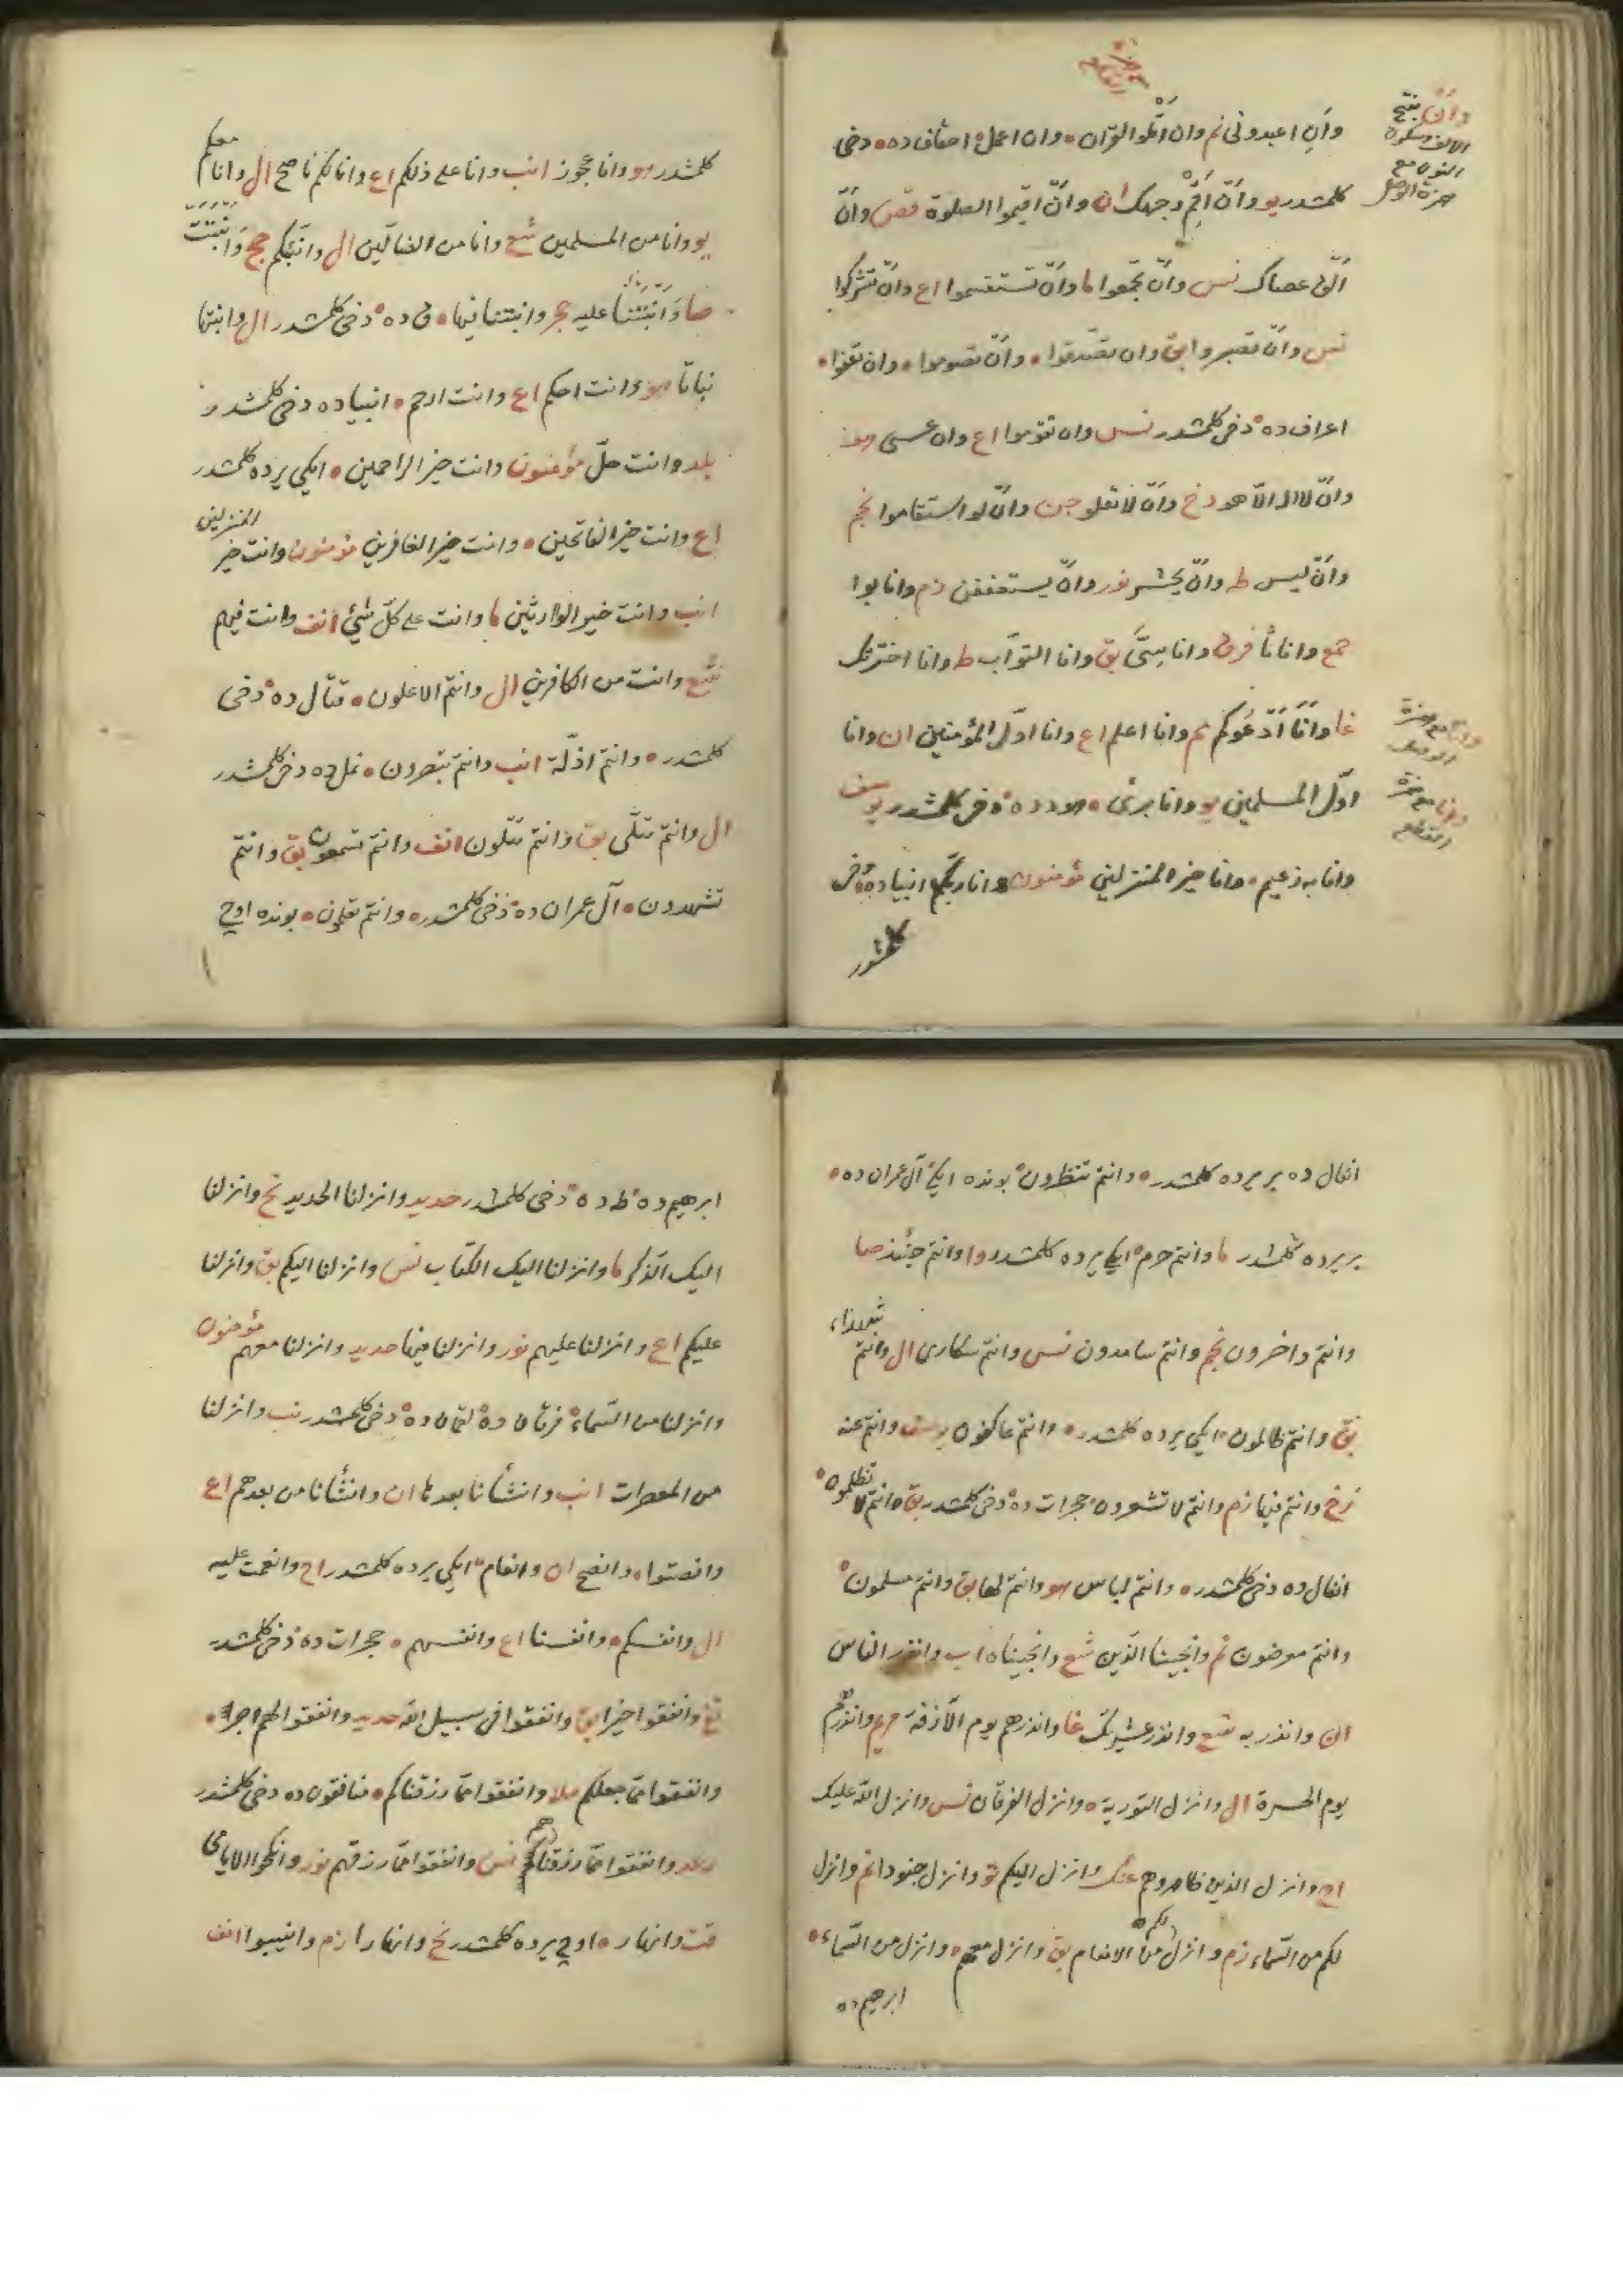 وأن بفتح
الالف وسكون
النون مع
همزة الوصل
وأن اعبدونى نم وان أتلوا القرآن وان اعمل احقاف ده دخى
كلمشدر يو وأن أقم وجهك ان وأن اقيموا الصلوة قصص وأن
ألق عصاك نس وأن تجمعوا ما وأن تستقسموا اع وأن تشركوا
نس وأن تصبروا بق وان تصدقوا وأن تصوموا وان تعفوا
اعراف ده دخى كلمشدر نس وان تقوموا اع وان عسى هو
وأن لا اله الا هو دخ وأن لا تعلوا جن وأن لو استقاموا نجم
وأن ليس طه وأن يحشر نور وأن يستعففن زم وانابوا
جمع وانا فرق وانا بق وانا التواب طه وانا اخترتك
وانا مع همزة
الوصل
غا وأنا أدعوكم نم وانا اعلم اع وانا اول المؤمنين ان وانا
وانا مع همزة
القطع
اول المسلمين يو وانا برئ هود ده دخى كلمشدر يوسف
وانا به زعيم وانا خير المنزلين مؤمنون وانا ربكم انبيا ده دخى
كلمشدر
كلمشدر هو وانا عجوز انب وانا على ذلكم اع وانا لكم ناصح ال وانا معكم
يو وانا من المسلمين شع وانا من الضالين ال وانبئكم حج وأنبتت
صا وأنبتنا عليه حجر وانبتنا فيها ق ده دخى كلمشدر ال وانبتها
نباتا هو وانت احكم اع وانت ارحم انبيا ده دخى كلمشدر
بلد وانت حل مؤمنون وانت خير الراحمين ايكى يرده كلمشدر
اع وانت خير الفاتحين وانت خير الغافرين مؤمنون وانت خير المنزلين
انب وانت خير الوارثين ما وانت على كل شئ انف وانت فيهم
شع وانت من الكافرين ال وانتم الاعلون قتال ده دخى
كلمشدر وانتم اذلة انب وانتم تبصرون نمل ده دخى كلمشدر
ال وانتم تتلى بق وانتم تتلون انف وانتم تسمعون بق وانتم
تشهدون آل عمران ده دخى كلمشدر وانتم تعلمون بونده اوچ
انفال ده بر يرده كلمشدر وانتم تنظرون بونده ايكى آل عمران ده
بر يرده كلمشدر ما وانتم حرم ايكى يرده كلمشدر وا وانتم حينئذ صا
وانتم داخرون نجم وانتم سامدون نس وانتم سكارى ال وانتم شهداء
بق وانتم ظالمون ايكى يرده كلمشدر وانتم عاكفون يوسف وانتم عنه
زخ وانتم فيها زم وانتم لا تشعرون حجرات ده دخى كلمشدر بق وانتم لا تظلمون
انفال ده دخى كلمشدر وانتم لباس هو وانتم لها بق وانتم مسلمون
وانتم معرضون نم وانجينا الذين شع وانجيناه اب وانذر الناس
ان وانذر به شع وانذر عشيرتك غا وانذرهم يوم الآزفة مريم وانذرهم
يوم الحسرة ال وانزل التورية وانزل الفرقان نس وانزل الله عليك
اح وانزل الذين ظاهروهم عنك وانزل اليكم تو وانزل جنودا نم وانزل
لكم من السماء زم وانزل لكم من الانعام بق وانزل معهم وانزل من السماء
ابرهيم ده
ابرهيم ده طه ده دخى كلمشدر حديد وانزلنا الحديد نح وانزلنا
اليك الذكر ما وانزلنا اليك الكتاب نس وانزلنا اليكم بق وانزلنا
عليكم اع وانزلنا عليهم نور وانزلنا فيها حديد وانزلنا معهم مؤمنون
وانزلنا من السماء فرقان ده لقمان ده دخى كلمشدر نب وانزلنا
من المعصرات انب وانشأنا بعدها ان وانشأنا من بعدهم اع
وانصتوا وانصح ان وانعام ايكى يرده كلمشدر اح وانعمت عليه
ال وانفسكم وانفسنا اع وانفسهم حجرات ده دخى كلمشدر
تغ وانفقوا خيرا بق وانفقوا فى سبيل الله حديد وانفقوا لهم اجر
وانفقوا مما جعلكم ملا وانفقوا مما رزقناكم منافقون ده دخى كلمشدر
رعد وانفقوا مما رزقناهم نس وانفقوا مما رزقهم نور وانكحوا الايامى
قت وانهار اوچ يرده كلمشدر نح وانهارا زم وانيبوا انف